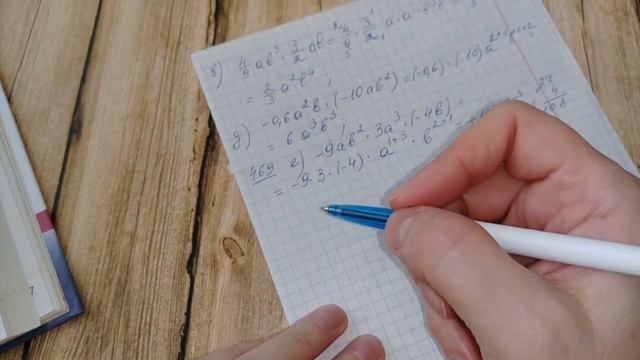 в) 4/9 ab³ · 3/2 ab = 4/9 · 3/2 · a · a ·
= 2/3 a²b⁴ ;
д) -0,6a²b · (-10ab²) = (-0,6) · (-10) a²⁺¹b¹⁺²=
= 6a³b³.
469 е) -9ab² · 3a³ · (-4b) =
= -9·3·(-4) · a¹⁺³ · b²⁺¹
7